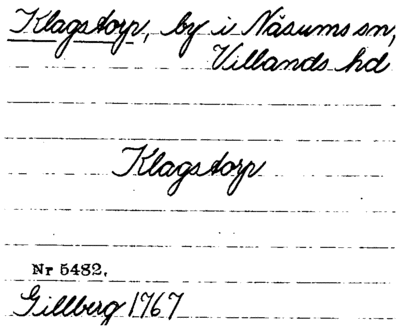 Klagstorp, by i Näsums sn,
Villands hd
Klagstorp
Nr 5482.
Gillberg 1767